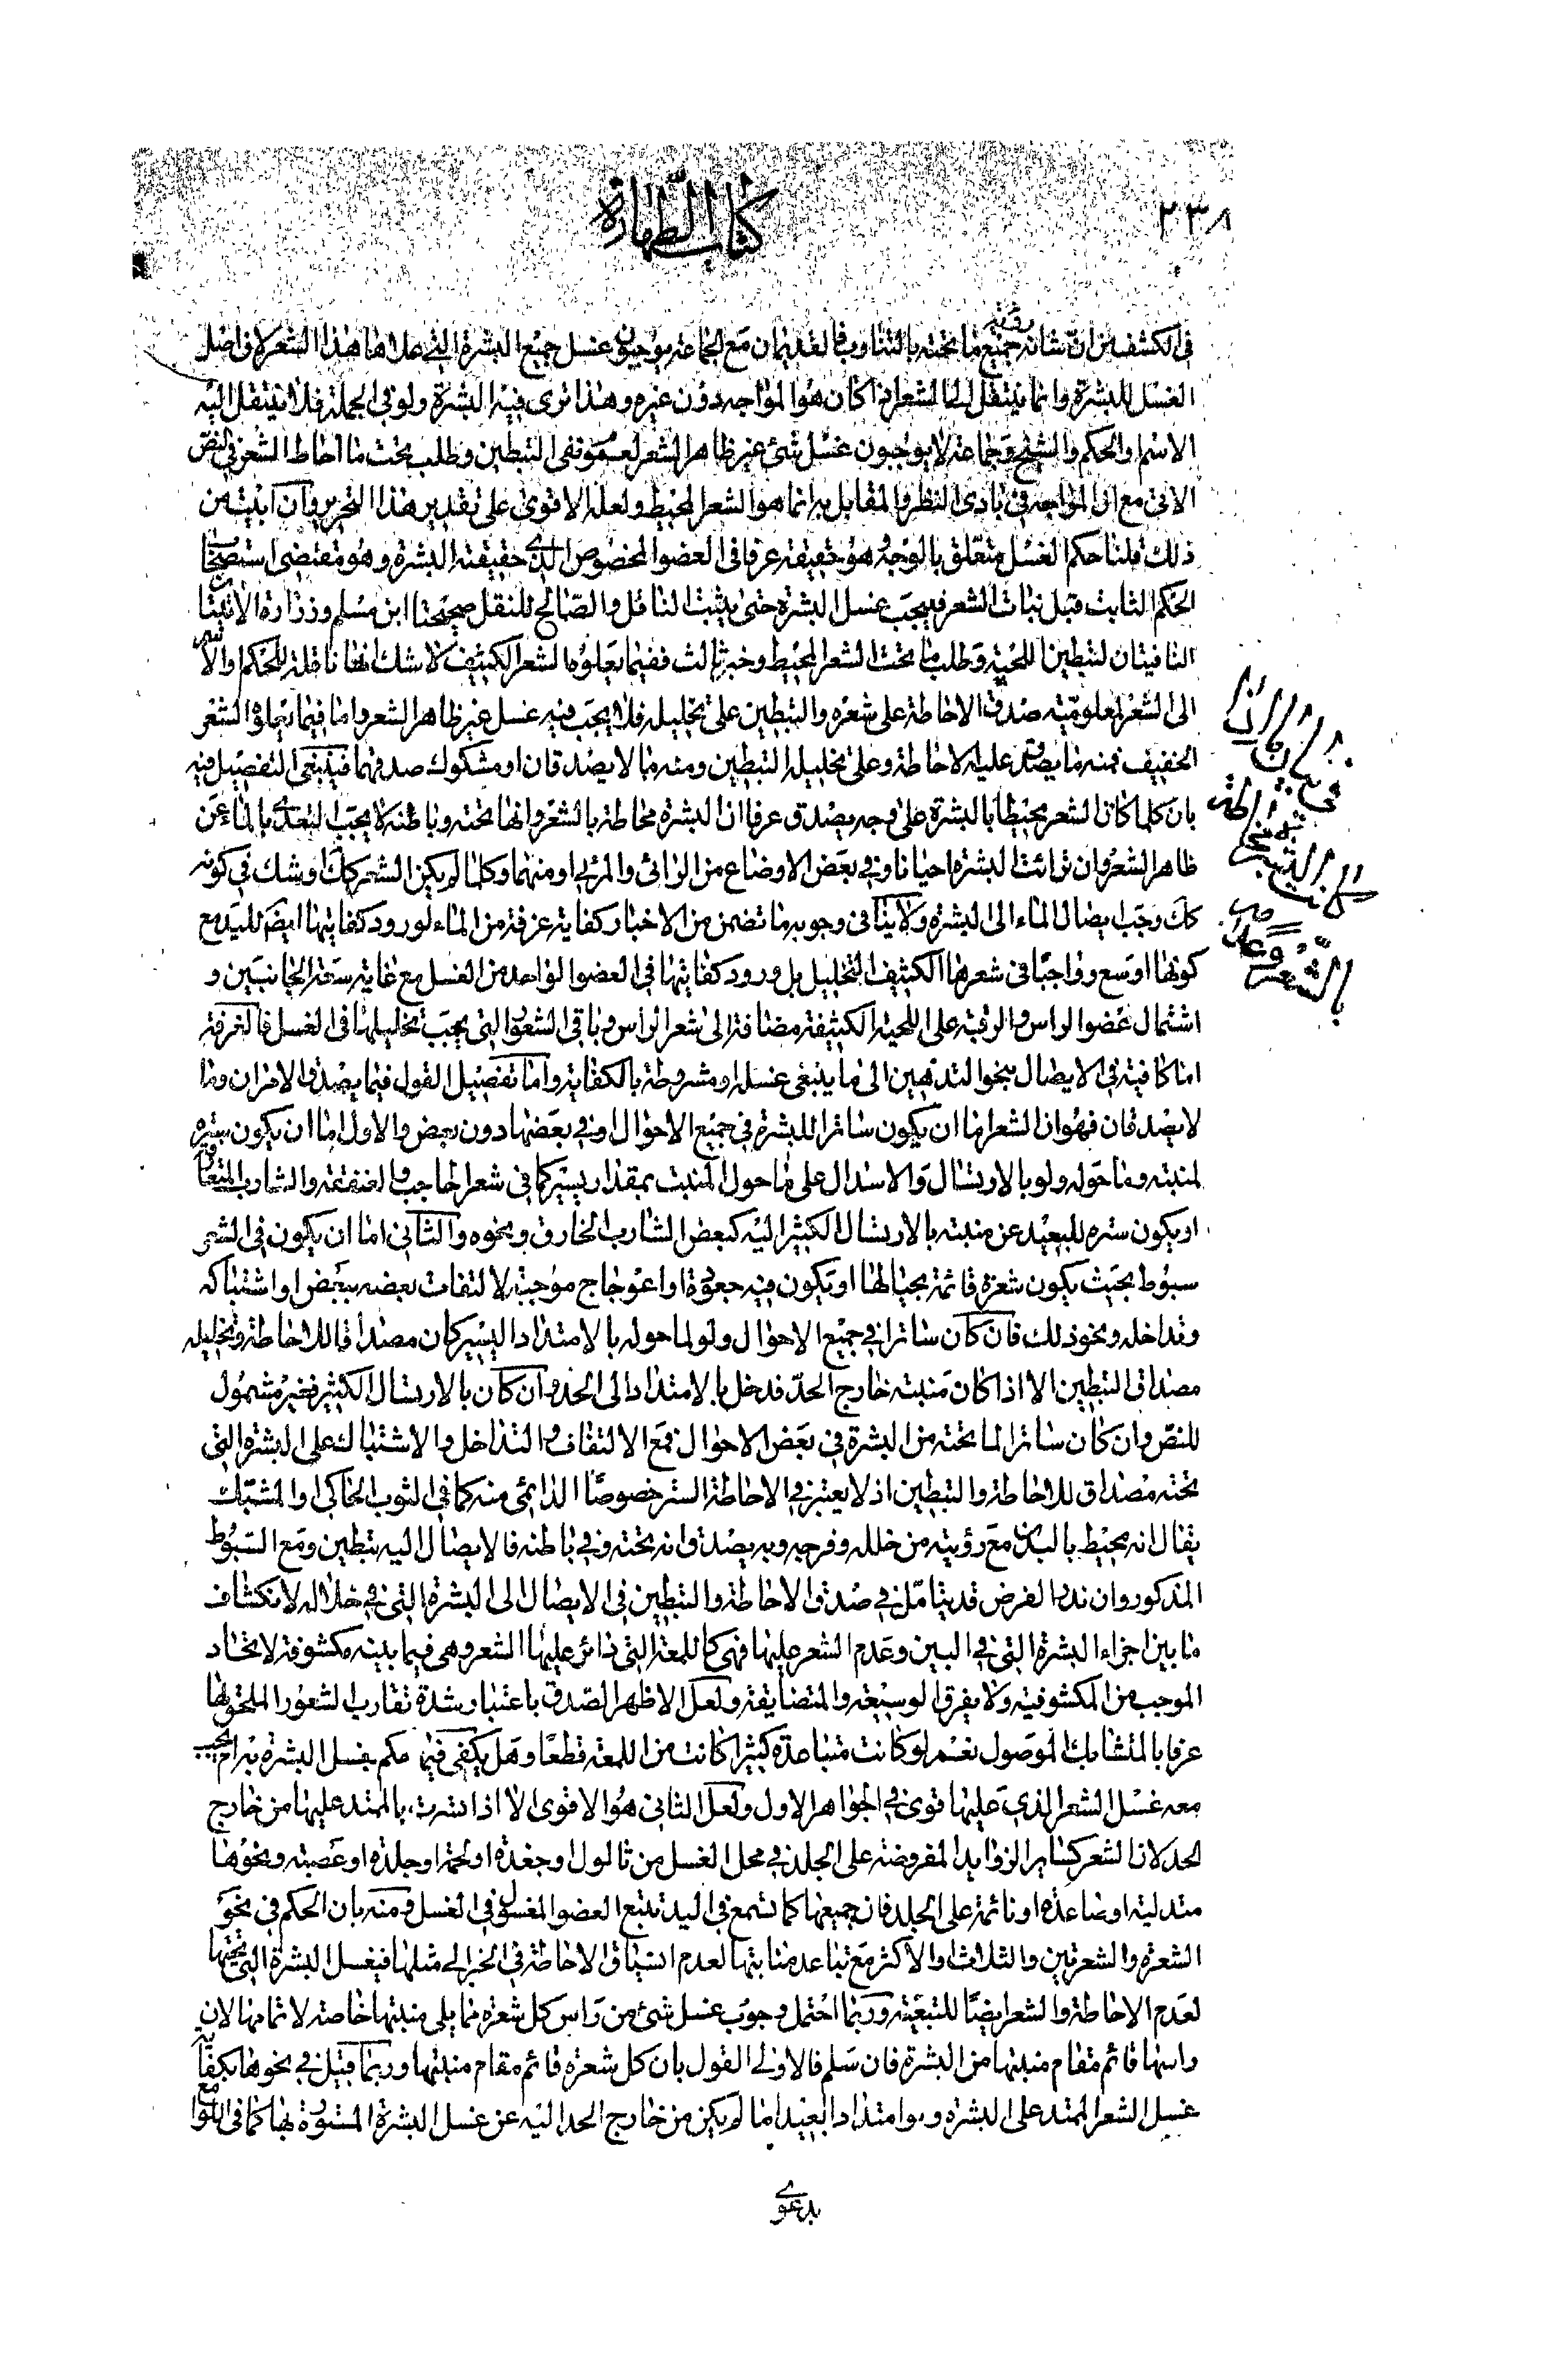 ٢٣٨
كتاب الطهارة
في الكشف من ان شانه رؤية جميع ما تحته بالتناوب فالقديمان مع الجماعة يوجبون غسل جميع البشرة التي علاها هذا الشعر لان اصل
الغسل للبشرة وانما ينتقل الى الشعر اذا كان هو المواجه دون غيره وهذا ترى فيه البشرة ولو في الجملة فلا ينتقل اليه
الاسم والحكم والشيخ وجماعة لا يوجبون غسل شئ غير ظاهر الشعر لعموم نفى التبطين وطلب تحت ما احاط الشعر في النص
الاتي مع ان المواجه في بادى النظر والمقابل به انما هو الشعر المحيط ولعله الاقوى على تقدير هذا التحرير وان ابيت من
ذلك قلنا حكم الغسل متعلق بالوجه وهو حقيقة عرفا في العضو المخصوص الذي حقيقته البشرة وهو مقتضى استصحاب
الحكم الثابت قبل نبات الشعر فيجب غسل البشرة حتى يثبت الناقل والصالح للنقل صحيحتا ابن مسلم وزرارة الاتيتان
النافيتان لتبطين اللحية وطلب ما تحت الشعر المحيط وخبر ثالث ففيما يعلوه الشعر الكثيف لا شك انها ناقلة للحكم والاسم
الى الشعر لمعلومية صدق الاحاطة على شعره والتبطين على تخليله فلا يجب فيه غسل غير ظاهر الشعر واما فيما يعلوه الشعر
الخفيف فمنه ما يصدق عليه الاحاطة وعلى تخليله التبطين ومنه ما لا يصدقان او مشكوك صدقهما فينبغى التفصيل فيه
بان كلما كان الشعر محيطا بالبشرة على وجه يصدق عرفا ان البشرة محاطة بالشعر وانها تحته وباطنه لا يجب التعدى بالماء عن
ظاهر الشعر وان ترائت البشرة احيانا وفي بعض الاوضاع من الرائى والمرئي او منهما وكلما لم يكن الشعر كك او شك في كونه
كك وجب ايصال الماء الى البشرة ولا ينافى وجوبه ما تضمن من الاخبار كفاية غرفة من الماء لورود كفايتها ايضا لليد مع
كونها اوسع وواجبا في شعرها الكثيف التخليل بل ورود كفايتها في العضو الواحد من الغسل مع غاية سعة الجانبين و
اشتمال عضو الراس والرقبة على اللحية الكثيفة مضافة الى شعر الراس وباقي الشعور التي يجب تخليلها في الغسل فالغرفة
اما كافية في الايصال بنحو التدهين الى ما ينبغى غسله او مشروطة بالكفاية واما تفصيل القول فيما يصدق الامران وما
لا يصدقان فهو ان الشعر اما ان يكون ساترا للبشرة في جميع الاحوال او في بعضها دون بعض والاول اما ان يكون ستره
لمنبته وما حوله ولو بالاريسال والاسدال على ما حول المنبت بمقدار يسير كما في شعر الحاجب والعنفقة والشارب المتعارف
او يكون ستره للبعيد عن منبته بالاريسال الكثير اليه كبعض الشارب الخارق ونحوه والثانى اما ان يكون في الشعر
سبوط بحيث يكون شعره قائمة بحيالها او يكون فيه جعودة او اعوجاج موجبة لالتفات بعضه ببعض او اشتباكه
وتداخله ونحو ذلك فان كان ساترا في جميع الاحوال ولو لما حوله بالامتداد اليسير كان مصداقا للاحاطة وتخليله
مصداق التبطين الا اذا كان منبته خارج الحد فدخل بالامتداد الى الحد وان كان بالاريسال الكثير فغير مشمول
للنص وان كان ساترا لما تحته من البشرة في بعض الاحوال فمع الالتفاف والتداخل والاشتباك على البشرة التي
تحته مصداق للاحاطة والتبطين اذ لا يعتبر في الاحاطة الستر خصوصا الدائمي منه كما في الثوب الحاكى او المشبك
يقال انه محيط بالبدن مع رؤيته من خلله وفرجه وبه يصدق انه تحته وفي باطنه فالايصال اليه تبطين ومع السبوط
المذكور وان ندر الفرض قد يتامل في صدق الاحاطة والتبطين في الايصال الى البشرة التي في خلاله لانكشاف
ما بين اجزاء البشرة التي في البين وعدم الشعر عليها فهى كاللمعة التي دائر عليها الشعر وهى فيما بينه مكشوفة لاتحاد
الموجب من المكشوفية ولا يفرق الوسيعة والمتضايقة ولعل الاظهر الصدق باعتبار شدة تقارب الشعور الملحق لها
عرفا بالمتشابك الموصول نعم لو كانت متباعدة كثيرا كانت من اللمعة قطعا وهل يكفى فيما حكم بغسل البشرة به ام يجب
معه غسل الشعر الذي عليها قوى في الجواهر الاول ولعل الثاني هو الاقوى الا اذا تسرت بالممتد عليها من خارج
الحد لان الشعر كساير الزوايد المفروضة على الجلد في محل الغسل من ثالول او جغدة او لحمة او جلدة او عصبة ونحوها
متدلية او صاعدة او نائمة على الجلد فان جميعها كما تسمع في اليد تتبع العضو المغسول في الغسل ومنه بان الحكم في نحو
الشعرة والشعرتين والثلاث والاكثر مع تباعد منابتها لعدم انسياق الاحاطة في الخبر الى مثلها فيغسل البشرة التي تحتها
لعدم الاحاطة والشعر ايضا للتبعية وربما احتمل وجوب غسل شئ من راس كل شعرة مما يلى منبتها خاصة لا تمامها لان
راسها قائم مقام منبتها من البشرة فان سلم فالاولى القول بان كل شعرة قائم مقام منبتها وربما قيل في نحوها بكفاية
غسل الشعر الممتد على البشرة ولو امتداد البعيد اما لم يكن من خارج الحد اليه عن غسل البشرة المستورة بها كما في اللوامع
بدعوى